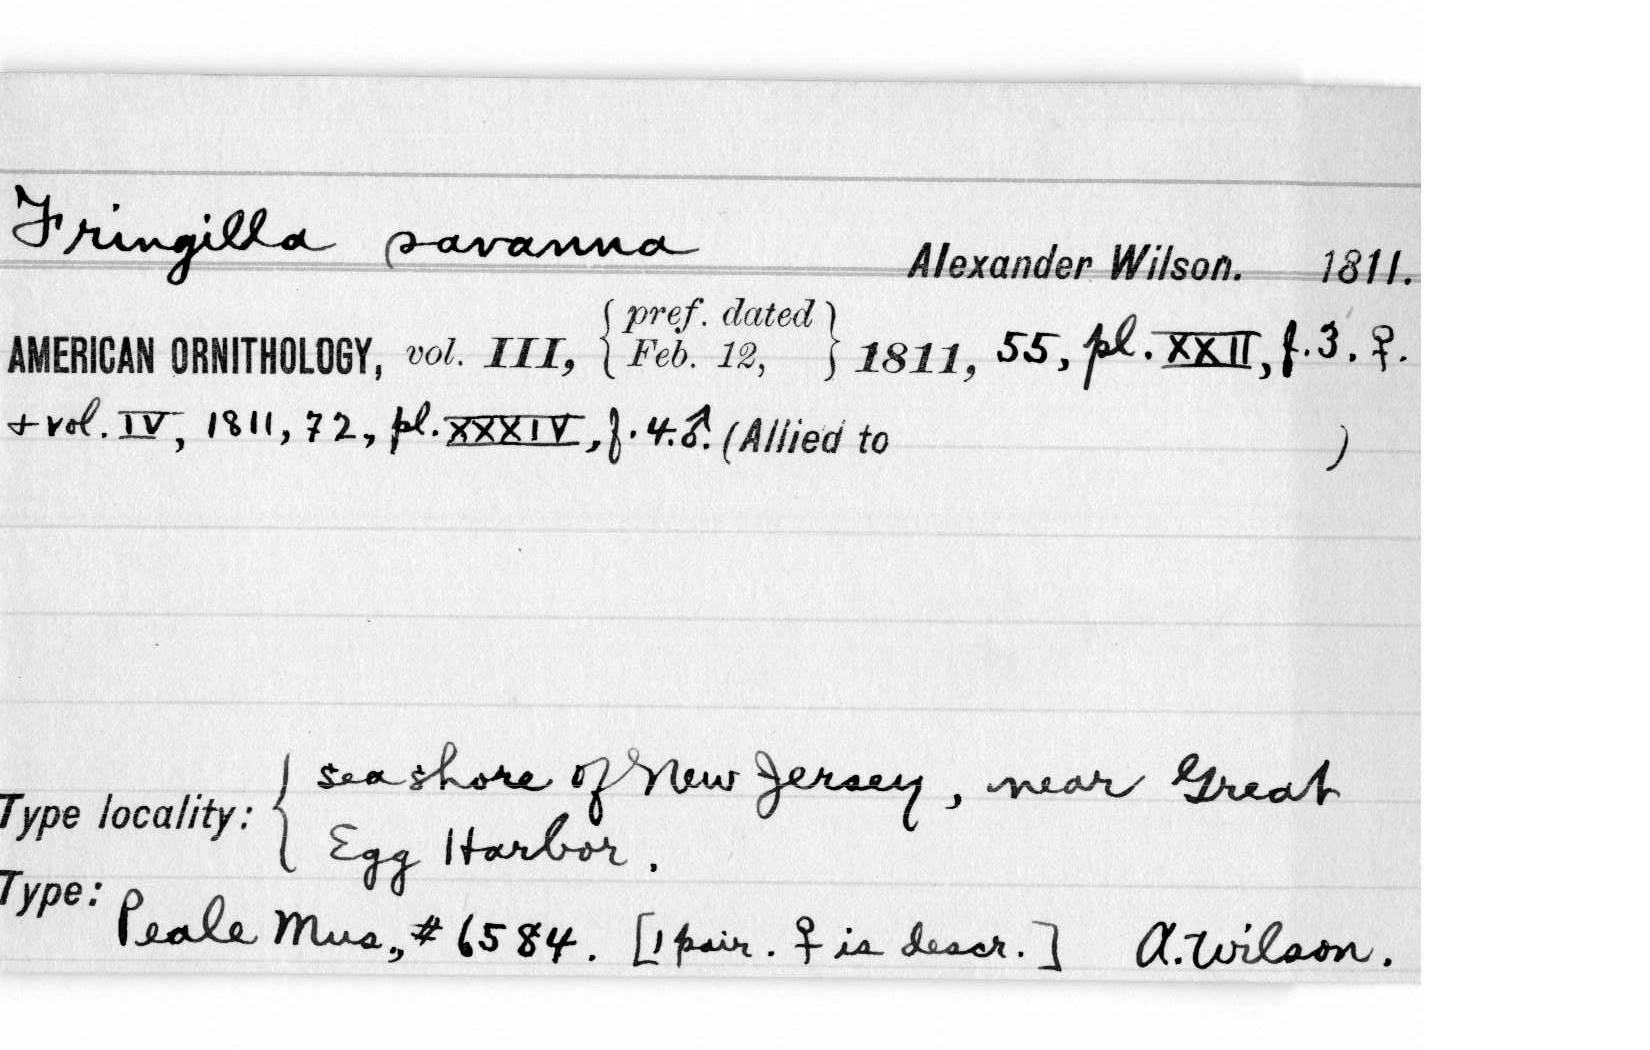 Fringilla savanna
Alexander Wilson. 1811.
AMERICAN ORNITHOLOGY, vol. III, { pref. dated Feb. 12, } 1811, 55, pl. XXII, f. 3. ♀.
+ vol. IV, 1811, 72, pl. XXXIV, f. 4. ♂. (Allied to )
Type locality: { sea shore of New Jersey, near Great
Egg Harbor.
Type:
Peale Mus., # 6584. [1 pair. ♀ is descr.] A. Wilson.